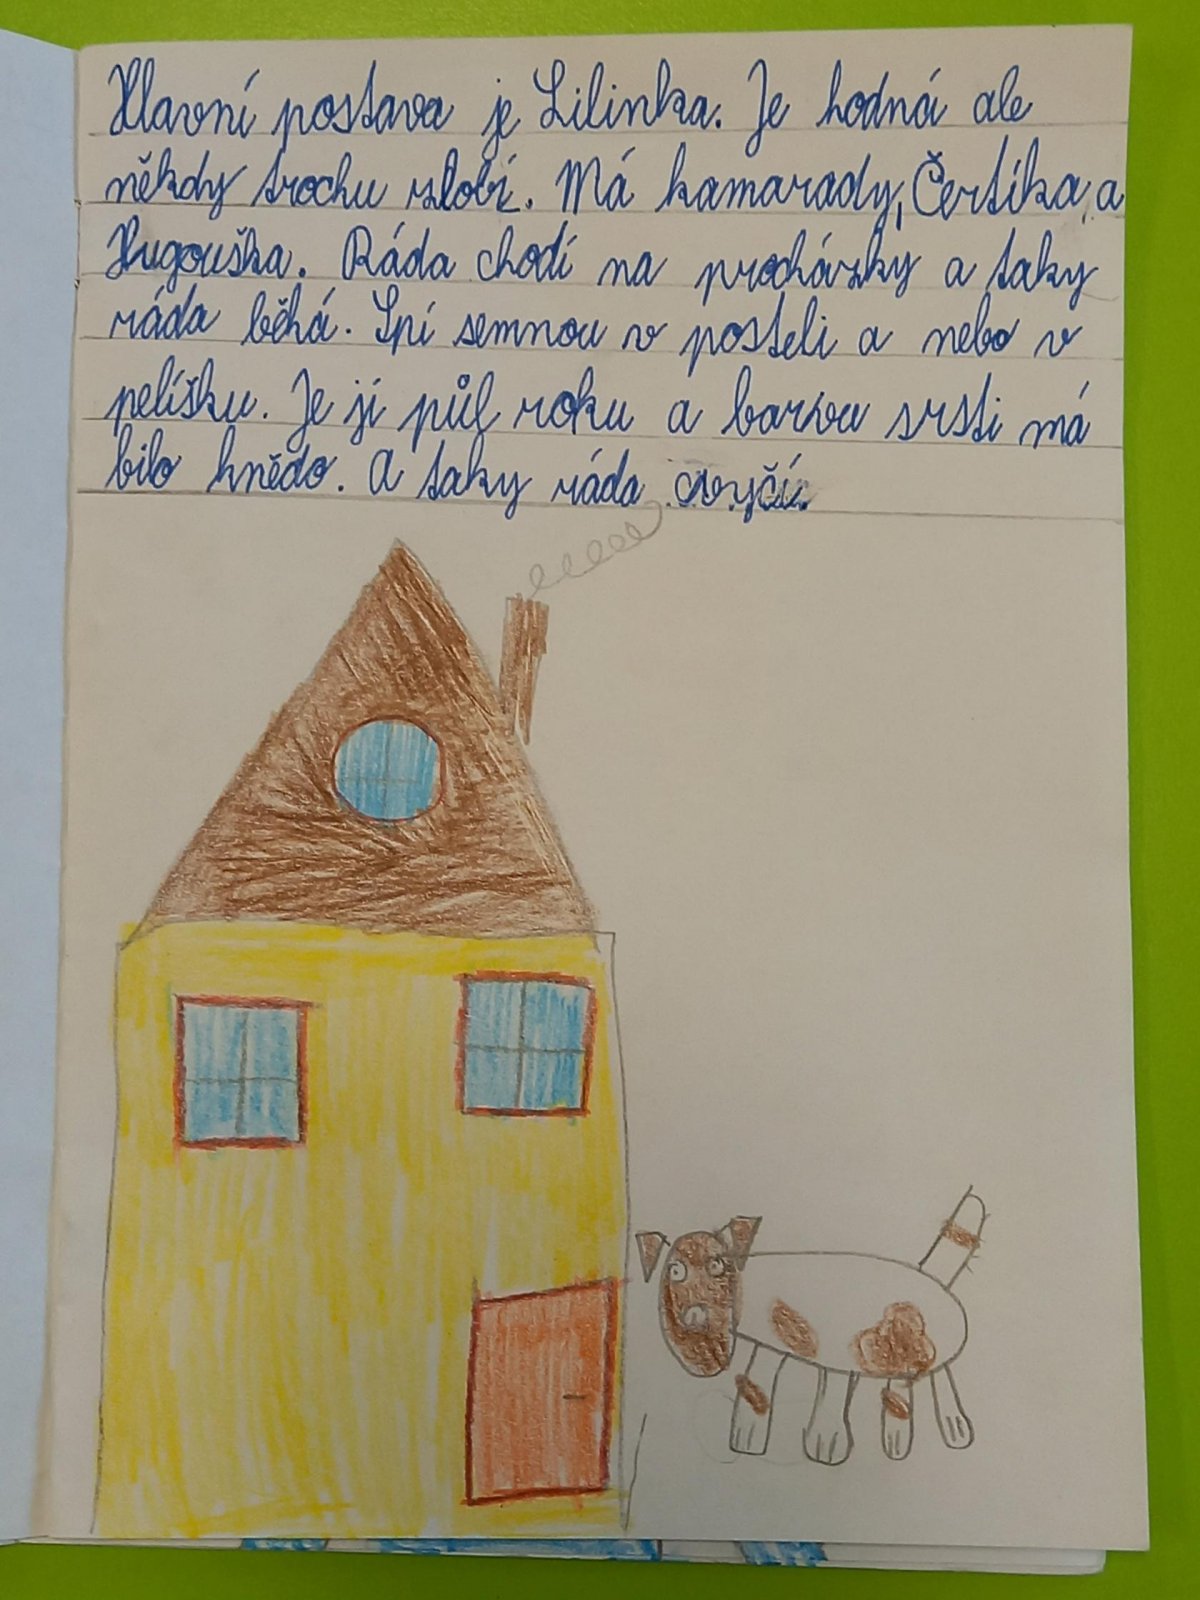 Hlavní postava je Lilinka. Je hodná ale
někdy trochu zlobí. Má kamarady, Čertíka, a
Hugouška. Ráda chodí na procházky a taky
ráda běhá. Spí semnou v posteli a nebo v
pelíšku. Je jí půl roku a barvu srsti má
bilo hnědo. A taky ráda